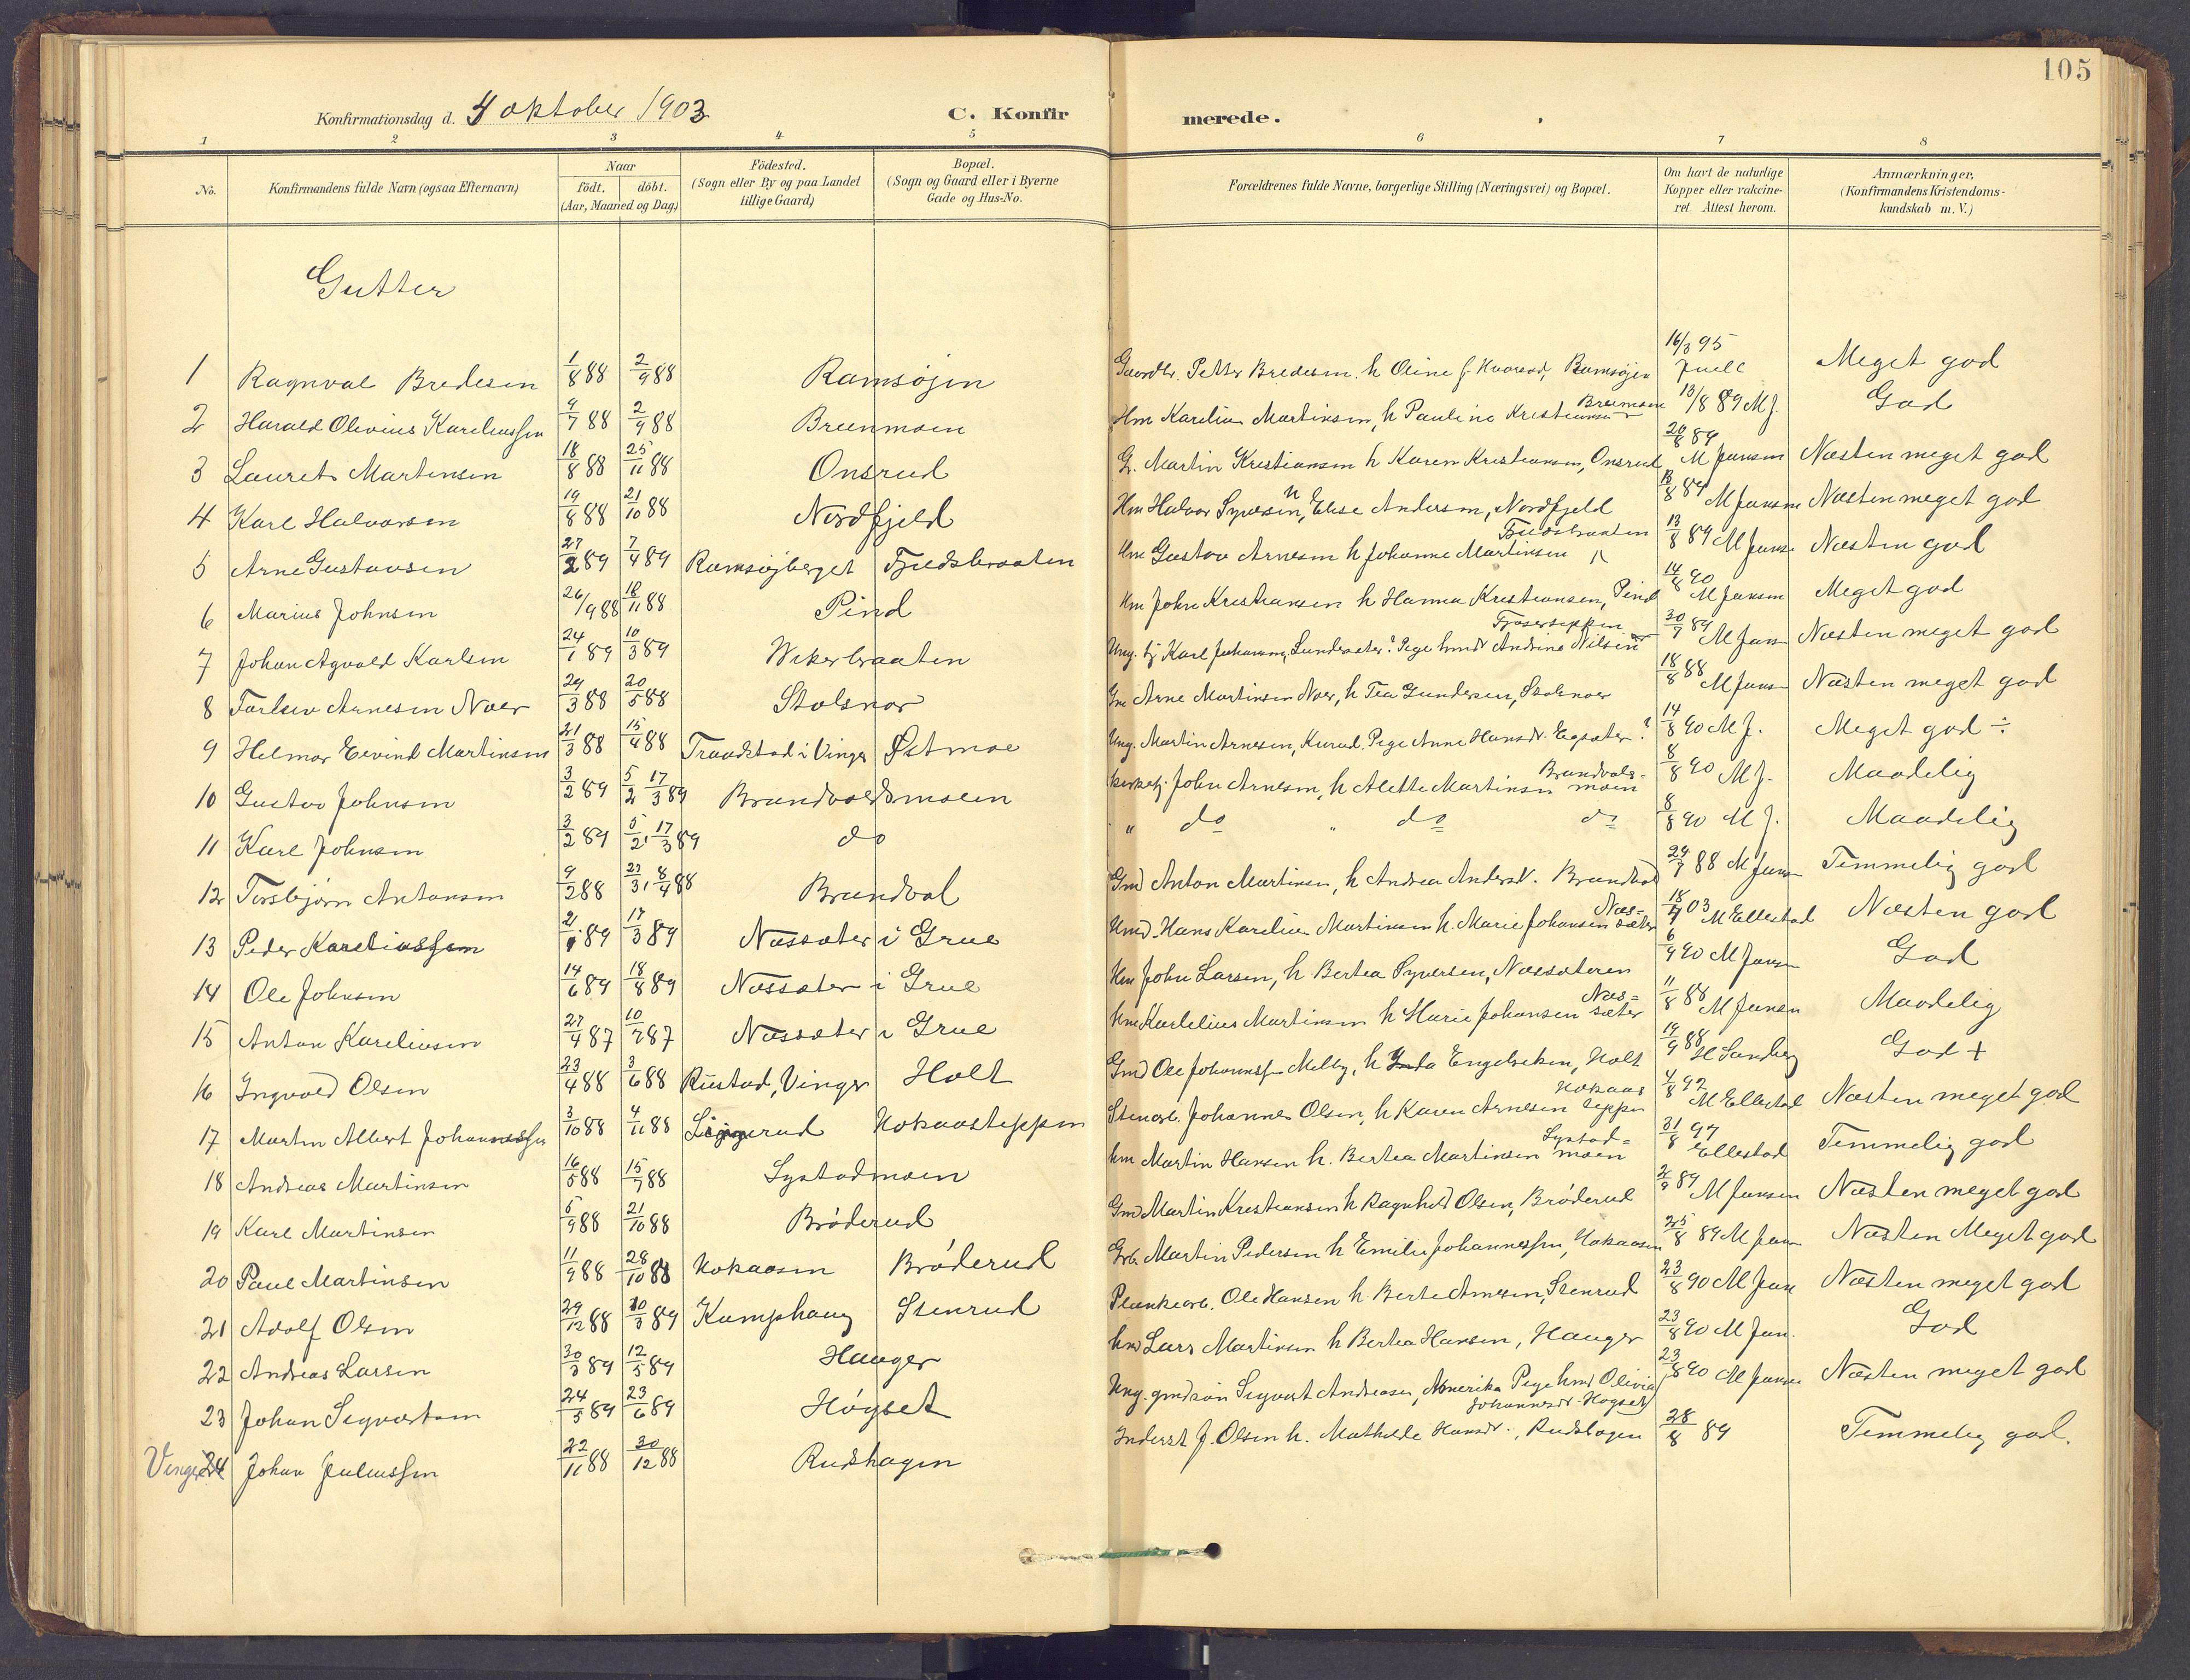 105
Konfirmationsdag d. 4 oktober 1903
C. Konfir merede.
1 2 3 4 5 6 7 8
No. Konfirmandens fulde Navn (ogsaa Efternavn) Naar født. døbt. (Aar, Maaned og Dag) Födested. (Sogn eller By og paa Landet tillige Gaard) Bopæl. (Sogn og Gaard eller i Byerne Gade og Hus-No. Forældrenes fulde Navne, borgerlige Stilling (Næringsvei) og Bopæl. Om havt de naturlige Kopper eller vakcineret. Attest herom. Anmærkninger, (Konfirmandens Kristendomskundskab m. V.)
Gutter
1 Ragnval Bredesen 1/8 88 2/9 88 Ramsøjen Petter Bredesen h Oline Ramsøjen 16/3 95 Juell Meget god
2 Harald Olivius Kareliussen 9/7 88 2/9 88 Breenmoen Hm Karelius Martinsen, h Pauline Kristiansen 13/8 89 M J. God
3 Laurets Martinsen 18/8 88 25/11 88 Onsrud G. Martin Kristiansen h Karen Kristiansen, Onsrud 20/8 89 M Jansen Næsten meget god
4 Karl Halvorsen 19/8 88 21/10 88 Nordfjeld Hm Halvor Syversen, h Elise Andersen, Nordfjeld 13/8 89 M Jansen Næsten meget god
5 Arne Gustavsen 27/2 89 7/4 89 Ramsøjberget Fjeldsbraaten Hm Gustav Arnesen h Johanne Martinsen 13/8 89 M Janse Næsten god
6 Marius Johnsen 26/9 88 18/11 88 Pind Hm John Kristiansen h Hanna Kristiansen, Pind 14/8 90 M Jansen Meget god
7 Johan Agvald Karlsen 24/1 89 10/3 89 Wikerbraaten Ung. tj Karl Johansen, Sundsæter? Pige Andrine Nilsen 30/7 89 M Jans Næsten meget god
8 Torlev Arnesen Noer 29/3 88 20/5 88 Stolsnor Gm Arne Martinsen Noer, h Tea Gundersen, Stolsnoer 18/8 88 M Janse Næsten meget god
9 Helmar Eivind Martinsen 21/3 88 15/4 88 Traadstad i Vinger Østmoe Ung. Martin Arnesen, Kurud. Pige Anne Hansdr. Egsæter? 14/8 90 M J. Meget god ÷
10 Gustav Johnsen 3/2 89 5/2 17/3 89 Brandvoldsmoen Kirketj. John Arnesen, h Alette Martinsen Brandvolsmoen 8/8 90 M J. Maadelig
11 Karl Johnsen 3/2 89 5/2, 17/3 89 do " do " do do 8/8 90 M J. Maadelig
12 Torsbjørn Antonsen 9/2 88 27/3, 8/4 88 Brandvol Gmd Anton Martinsen, h Andrea Andersdr. Brandvol 29/7 88 M Jansen Temmelig god
13 Peder Kareliussen 21/1 89 17/3 89 Næssæter i Grue Hmd Hans Karelius Martinsen h. Marie Johansen Næssæter 18/9 03 M Ellestad Næsten god
14 Ole Johnsen 14/6 89 18/8 89 Næssæter i Grue Hm John Larsen, h Bertea Syversen, Næssæteren 6/9 90 M Jansen God
15 Anton Kareliusen 27/4 87 10/7 87 Næssæter i Grue Hm Karelius Martinsen h Marie Johansen Næssæter 11/8 88 M Jansen Maadelig
16 Ingvald Olsen 23/4 88 3/6 88 Rustad, Vinger Holt Gmd Ole Johannsen Melby, h Engebretsen, Holt 19/9 88 H Sandberg God +
17 Martin Albert Johannessen 3/10 88 4/11 88 Hokaasteppen Stenarb. Johannes Olsen, h Karen Arnesen Hokaasteppen 4/8 92 M Ellestad Næsten meget god
18 Andreas Martinsen 16/5 88 15/7 88 Systadmoen hm Martin Hansen h. Bertea Martinsen Systadmoen 31/8 97 Ellestad Temmelig god
19 Karl Martinsen 5/9 88 21/10 88 Brøderud Gmd Martin Kristiansen h Ragnhild Olsen, Brøderud 2/9 89 M Jansen Næsten meget god
20 Paul Martinsen 11/9 88 28/10 88 Hokaasen Brøderud Martin Pedersen h Emilie Johannessen, Hokaasen 25/8 89 M Jan Næsten Meget god
21 Adolf Olsen 29/12 88 10/3 89 Kamphaug Stenrud Plankearb. Ole Hansen h. Berte Arnesen, Stenrud 23/8 90 M Jan Næsten meget god
22 Andreas Larsen 30/3 89 12/5 89 Hauger hmd Lars Martinsen h Bertea Hansen, Hauger 23/8 90 M Jan. God
23 Johan Sigvartsen 24/5 89 23/6 89 Høgset Ung. gmdsøn Sigvart Andreasen, Amerika Pige hmd Olivia Johannesdr. Høgset 23/8 90 M Jansen Næsten meget god
Vinger 24 Johan Juliussen 22/11 88 30/12 88 Rudshagen Inderst J. Olsen h. Mathilde Hansdr., Rudshagen 28/8 89 Temmelig god.